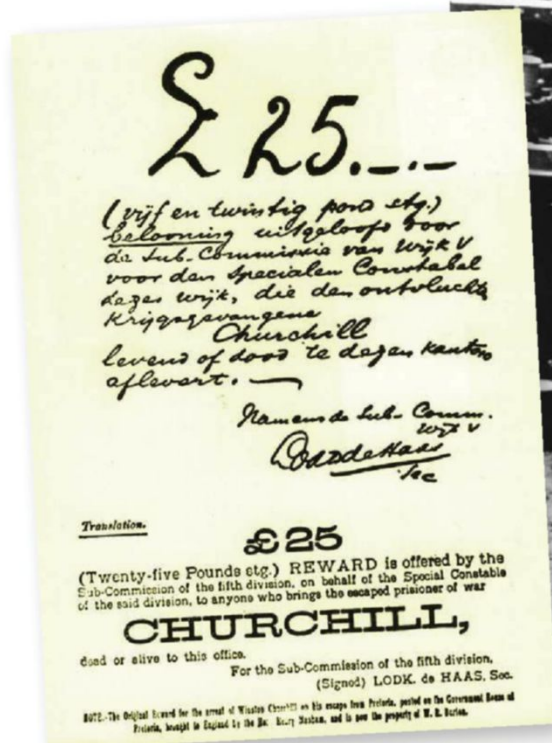 £ 25.-.-
(vijf en twintig pond stg.)
belooning uitgeloofd door
de Sub-Commissie van Wijk V
voor den Specialen Constabel
dezes wijk, die den ontvluchte
Krijgsgevangene
Churchill
levend of dood te dezen kantore
aflevert. —
Namens de Sub-Comm.
Wijk V
Lodk de Haas
Sec
Translation.
£25
(Twenty-five Pounds stg.) REWARD is offered by the
Sub-Commission of the fifth division, on behalf of the Special Constable
of the said division, to anyone who brings the escaped prisioner of war
CHURCHILL,
dead or alive to this office.
For the Sub-Commission of the fifth division,
(Signed) LODK. de HAAS, Sec.
NOTE.-The Original Reward for the arrest of Winston Churchill on his escape from Pretoria, posted on the Government House at
Pretoria, brought to England by the Hon. Henry Masham, and is now the property of W. R. Burton.